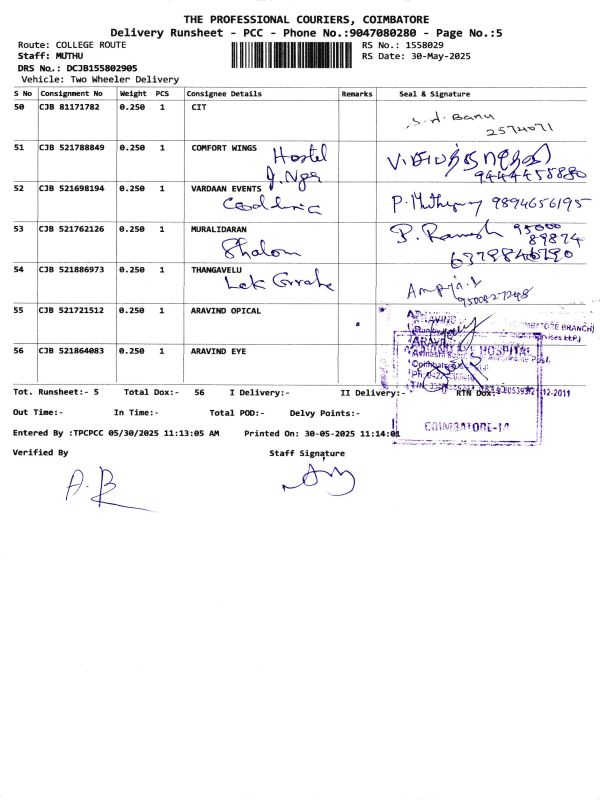 THE PROFESSIONAL COURIERS, COIMBATORE
Delivery Runsheet - PCC - Phone No.:9047080280 - Page No.:5
Route: COLLEGE ROUTE RS No.: 1558029
Staff: MUTHU RS Date: 30-May-2025
DRS No.: DCJB155802905
Vehicle: Two Wheeler Delivery
S No Consignment No Weight PCS Consignee Details Remarks Seal & Signature
50 CJB 81171782 0.250 1 CIT
S. A. Banu
2574071
51 CJB 521788849 0.250 1 COMFORT WINGS
Hostel
9444455880
52 CJB 521698194 0.250 1 VARDAAN EVENTS
9894656195
53 CJB 521762126 0.250 1 MURALIDARAN
P. Ramesh 95000
89874
Shalom
54 CJB 521886973 0.250 1 THANGAVELU
55 CJB 521721512 0.250 1 ARAVIND OPICAL
56 CJB 521864083 0.250 1 ARAVIND EYE
HOSPITAL
COIMBATORE-14
Tot. Runsheet:- 5 Total Dox:- 56 I Delivery:- II Delivery:- RTN Dox:-
Out Time:- In Time:- Total POD:- Delvy Points:-
Entered By :TPCPCC 05/30/2025 11:13:05 AM Printed On: 30-05-2025 11:14:01
Verified By Staff Signature